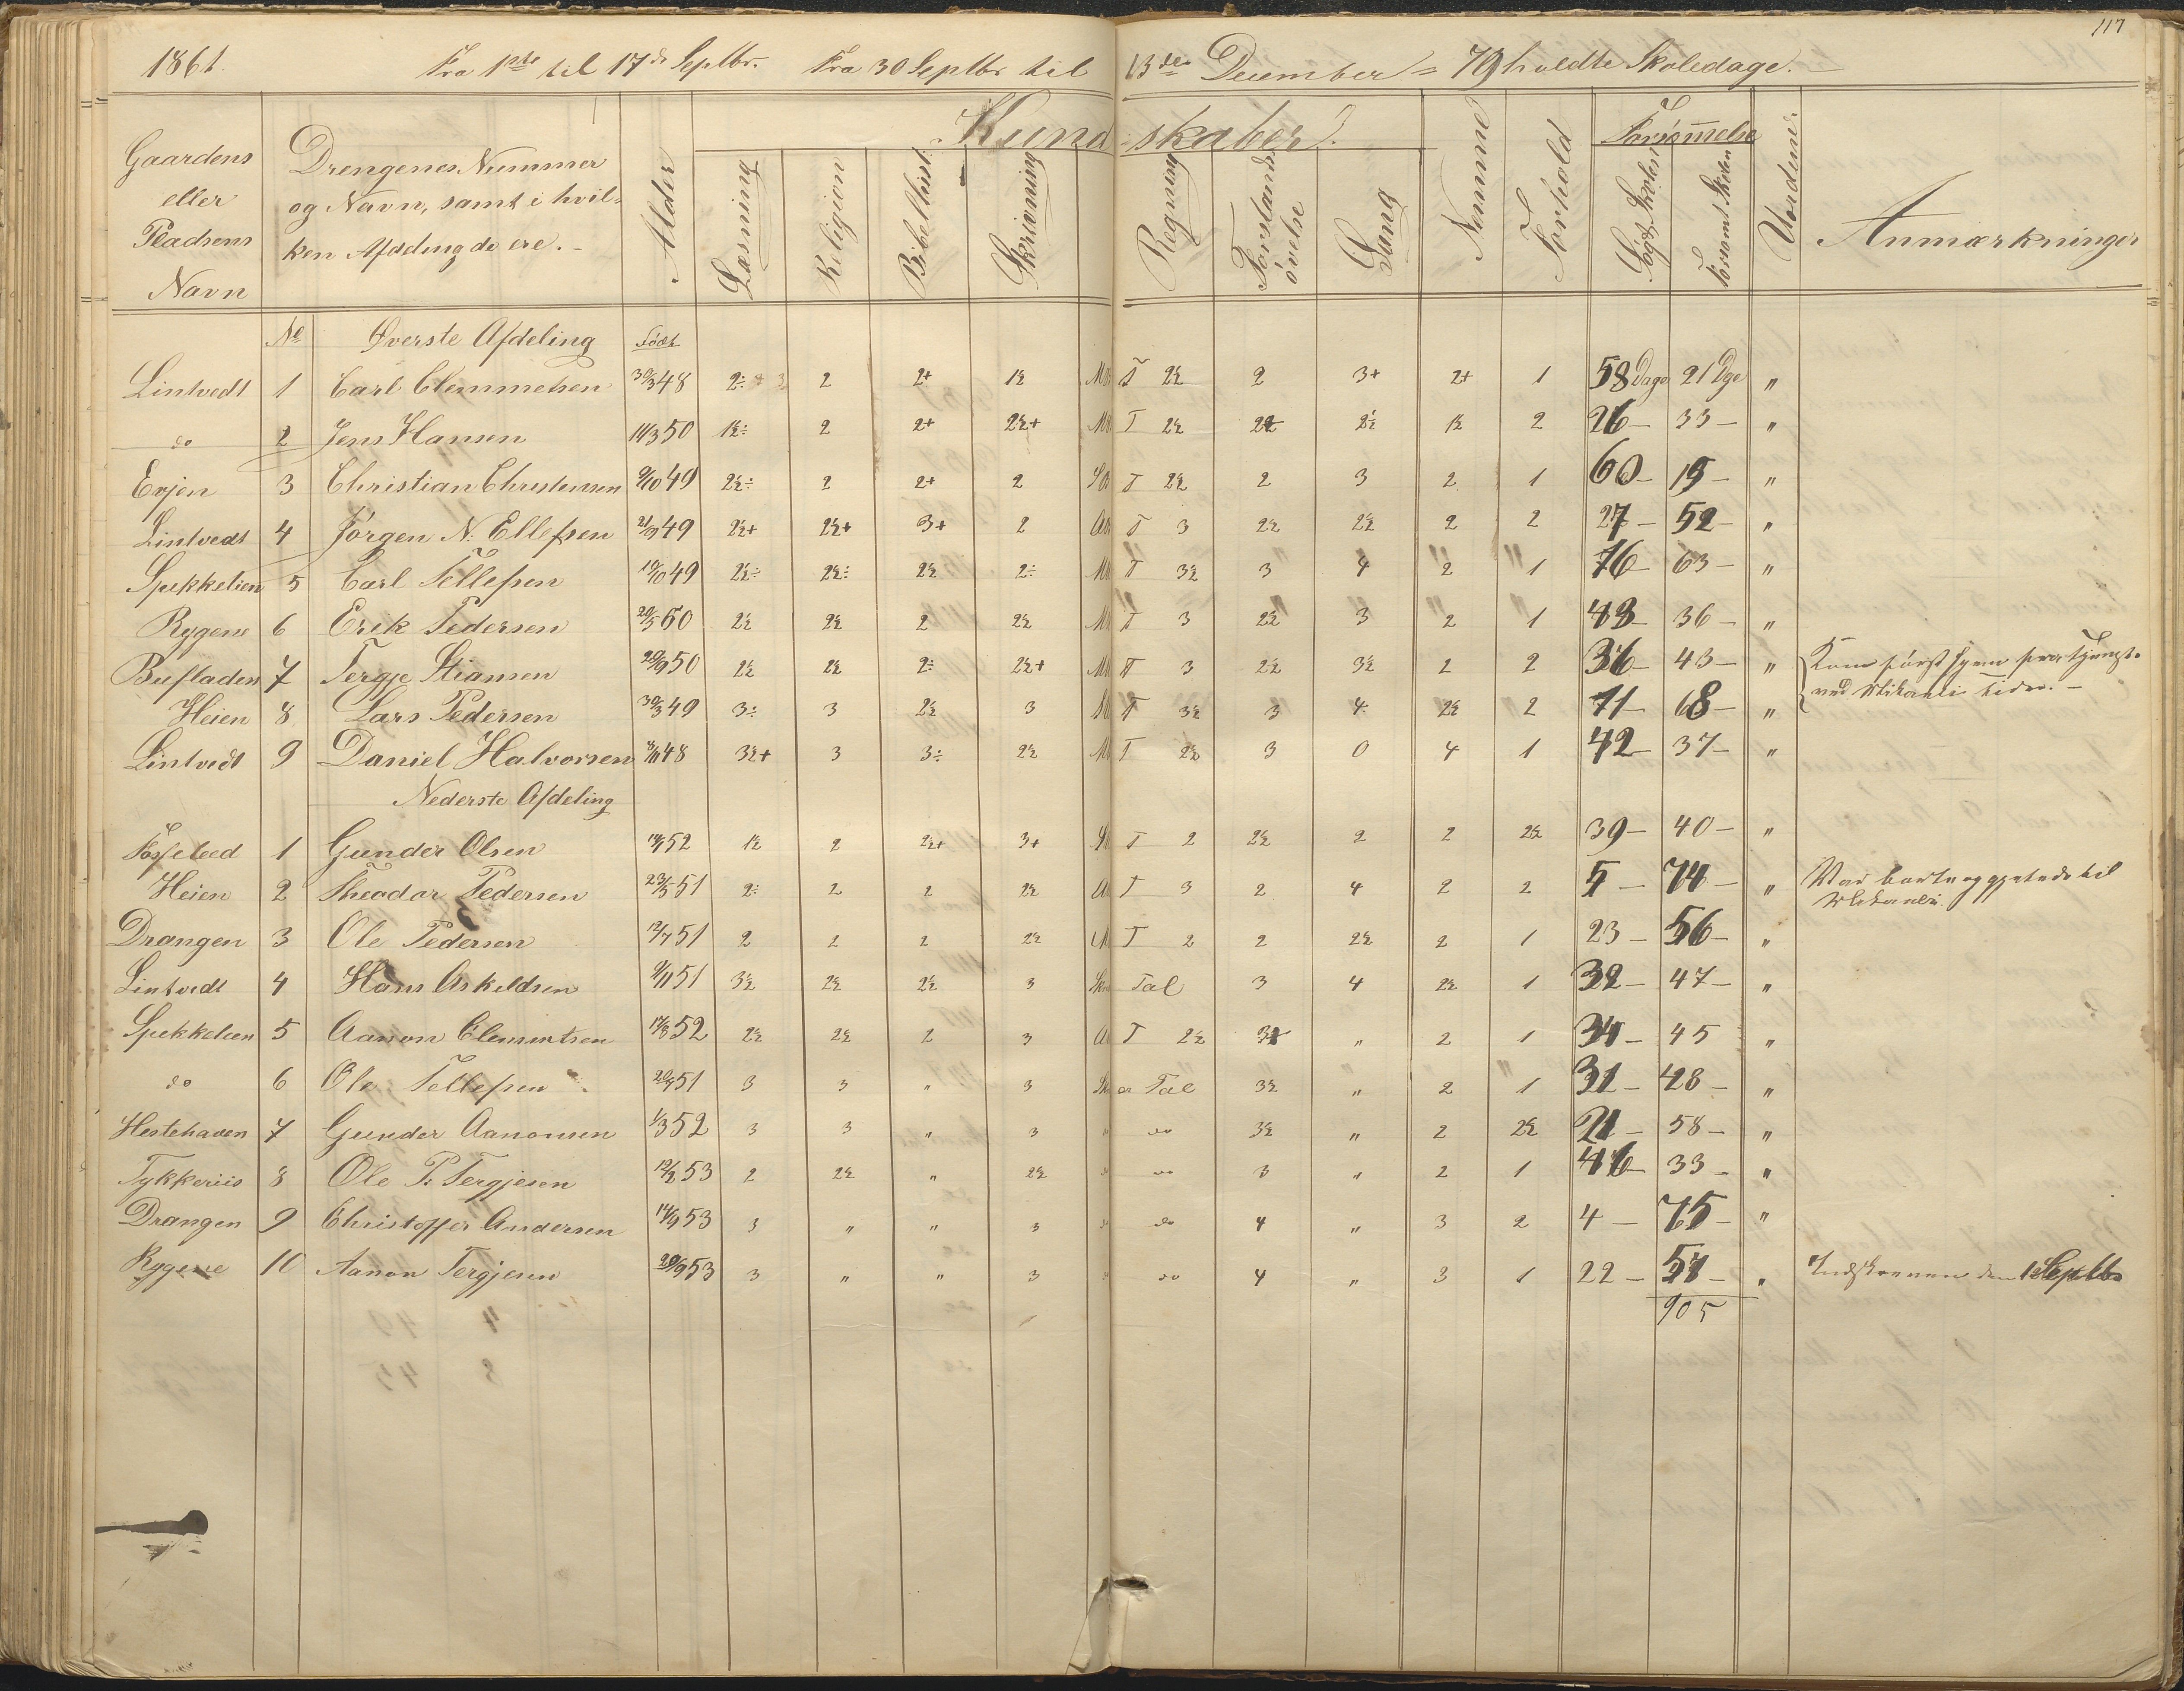 117
1861. Fra 1ste til 17de Septbr. Fra 30 Septbr til 13den December = 79 holdte Skoledage.
Gaardens eller Pladsens Navn | Drengenes Nummer og Navn, samt i hvilken Afdeling de ere. | Alder | Kundskaber. | Nemme | Forhold | Forsømmelse | Vurdener | Anmærkninger
Læsning | Religion | Bibelhist. | Skrivning | Regning | Forstands øvelse | Sang | Søgt Skolen | Forsømt Skolen
No Øverste Afdeling Født
Lintvedt 1 Carl Clemmetsen 30/3 48 2÷ 2 2+ 1½ T 2½ 2 3+ 2+ 1 58 Dage 21 Dge "
do 2 Jens Hansen 11/3 50 1½÷ 2 2+ 2½+ T 2½ 2½ 2½ 1½ 2 26 – 33 – "
Evjen 3 Christian Christensen 9/10 49 2½÷ 2 2+ 2 T 2½ 2 3 2 1 60 – 19 – "
Lintvedt 4 Jörgen N. Ellefsen 21/9 49 2½+ 2½+ 3+ 2 T 3 2½ 2½ 2 2 27 – 52 – "
Spekkelien 5 Carl Tellefsen 10/10 49 2½÷ 2½÷ 2½ 2÷ T 3½ 3 4 2 1 16 – 63 – "
Rygene 6 Erik Pedersen 20/5 50 2½ 2½ 2 2½ T 3 2½ 3 2 1 43 – 36 – "
Bufladen 7 Tergje Stiansen 20/9 50 2½ 2½ 2÷ 2½+ T 3 2½ 3½ 2 2 36 – 43 – " Kom først hjem fra Tjenst.
Heien 8 Lars Pedersen 30/3 49 3÷ 3 2½ 3 T 3½ 3 4 2½ 2 11 – 68 – " ved Mikaeli Tider. –
Lintvedt 9 Daniel Halvorsen 8/11 48 3½+ 3 3÷ 2½ T 2½ 3 0 4 1 42 – 37 – "
Nederste Afdeling
1 Gunder Olsen 52 1½ 2 2½+ 3+ T 2 2½ 2 2 2½ 39 – 40 – "
Heien 2 Theodor Pedersen 23/5 51 2÷ 2 2 2½ T 3 2 4 2 2 5 – 74 – " Var borte og gjetede til
Mikaeli.
Drangen 3 Ole Pedersen 12/7 51 2 2 2 2½ T 2 2 2½ 2 1 23 – 56 – "
Lintvedt 4 Hans Askeldsen 9/11 51 3½ 2½ 2½ 3 Tal 3 4 2½ 1 32 – 47 – "
Spekkelien 5 Aanon Clemmetsen 17/8 52 2½ 2½ 2 3 T 2½ 3½ " 2 1 34 – 45 "
do 6 Ole Tellefsen 20/9 51 3 3 " 3 Tal 3½ " 2 1 31 – 48 – "
Hestehaven 7 Gunder Aanonsen 1/3 52 3 3 " 3 do 3½ " 2 2½ 21 – 58 – "
Tykkeriis 8 Ole P. Tergjesen 12/2 53 2 2½ " 2½ do 3 " 2 1 46 – 33 – "
Drangen 9 Christoffer Andersen 14/9 53 3 " " 3 do 4 " 3 2 4 – 75 – "
Rygene 10 Aanon Tergjesen 20/9 53 3 " " 3 do 4 " 3 1 22 – 57 – " Indskreven den 1 Septbr
905